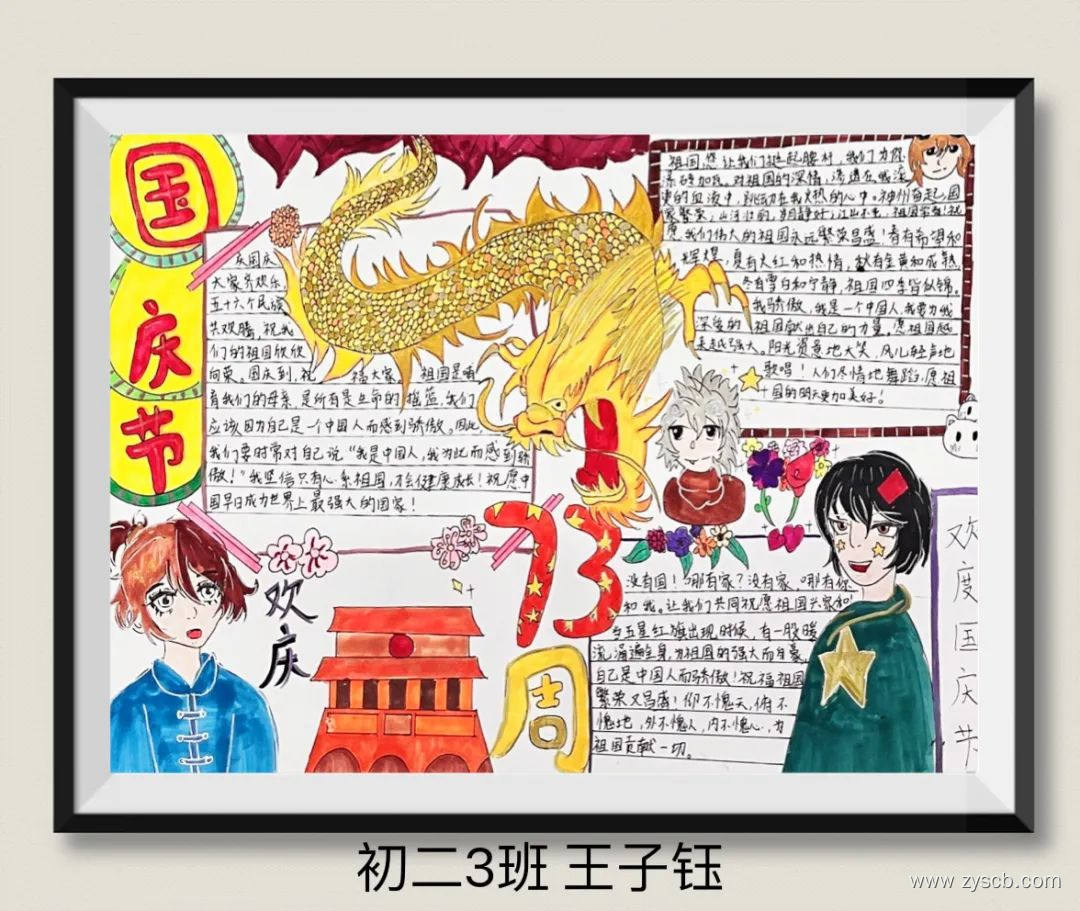 国
庆
节
庆国庆
大家齐欢乐
五十六个民族
共欢腾，祝我
们的祖国欣欣
向荣。国庆到，祝福大家，祖国是哺
育我们的母亲，是所有是生命的摇篮，我们
应该因为自己是一个中国人而感到骄傲。因此
我们要时常对自己说“我是中国人，我为此而感到骄
傲！”我坚信只有心系祖国，才会健康成长！祝愿中
国早日成为世界上最强大的国家！
祖国您让我们挺起腰杆，我们为你
添砖加瓦。对祖国的深情，流淌在我深
爱的血液中，跳动在我火热的心中。神州奋起，国
家繁荣；山河壮丽，岁月静好；江山不老，祖国常春！祝
愿我们伟大的祖国永远繁荣昌盛！春有希望和
辉煌，夏有火红和热情，秋有金黄和成熟，
冬有雪白和宁静，祖国四季皆似锦。
我骄傲，我是一个中国人，我要为我
深爱的祖国献出自己的力量，愿祖国越
来越强大。阳光肆意地大笑，风儿轻声地
歌唱！人们尽情地舞蹈，愿祖
国的明天更加美好！
73
周
欢
庆
没有国！哪有家？没有家，哪有你
和我。让我们共同祝愿祖国兴家和！
当五星红旗出现时候，有一股暖
流，涌遍全身，为祖国的强大而自豪，
自己是中国人而骄傲！祝福祖国
繁荣又昌盛！仰不愧天，俯不
愧地，外不愧人，内不愧心，为
祖国贡献一切。
欢
度
国
庆
节
初二3班 王子钰
www.zyscb.com